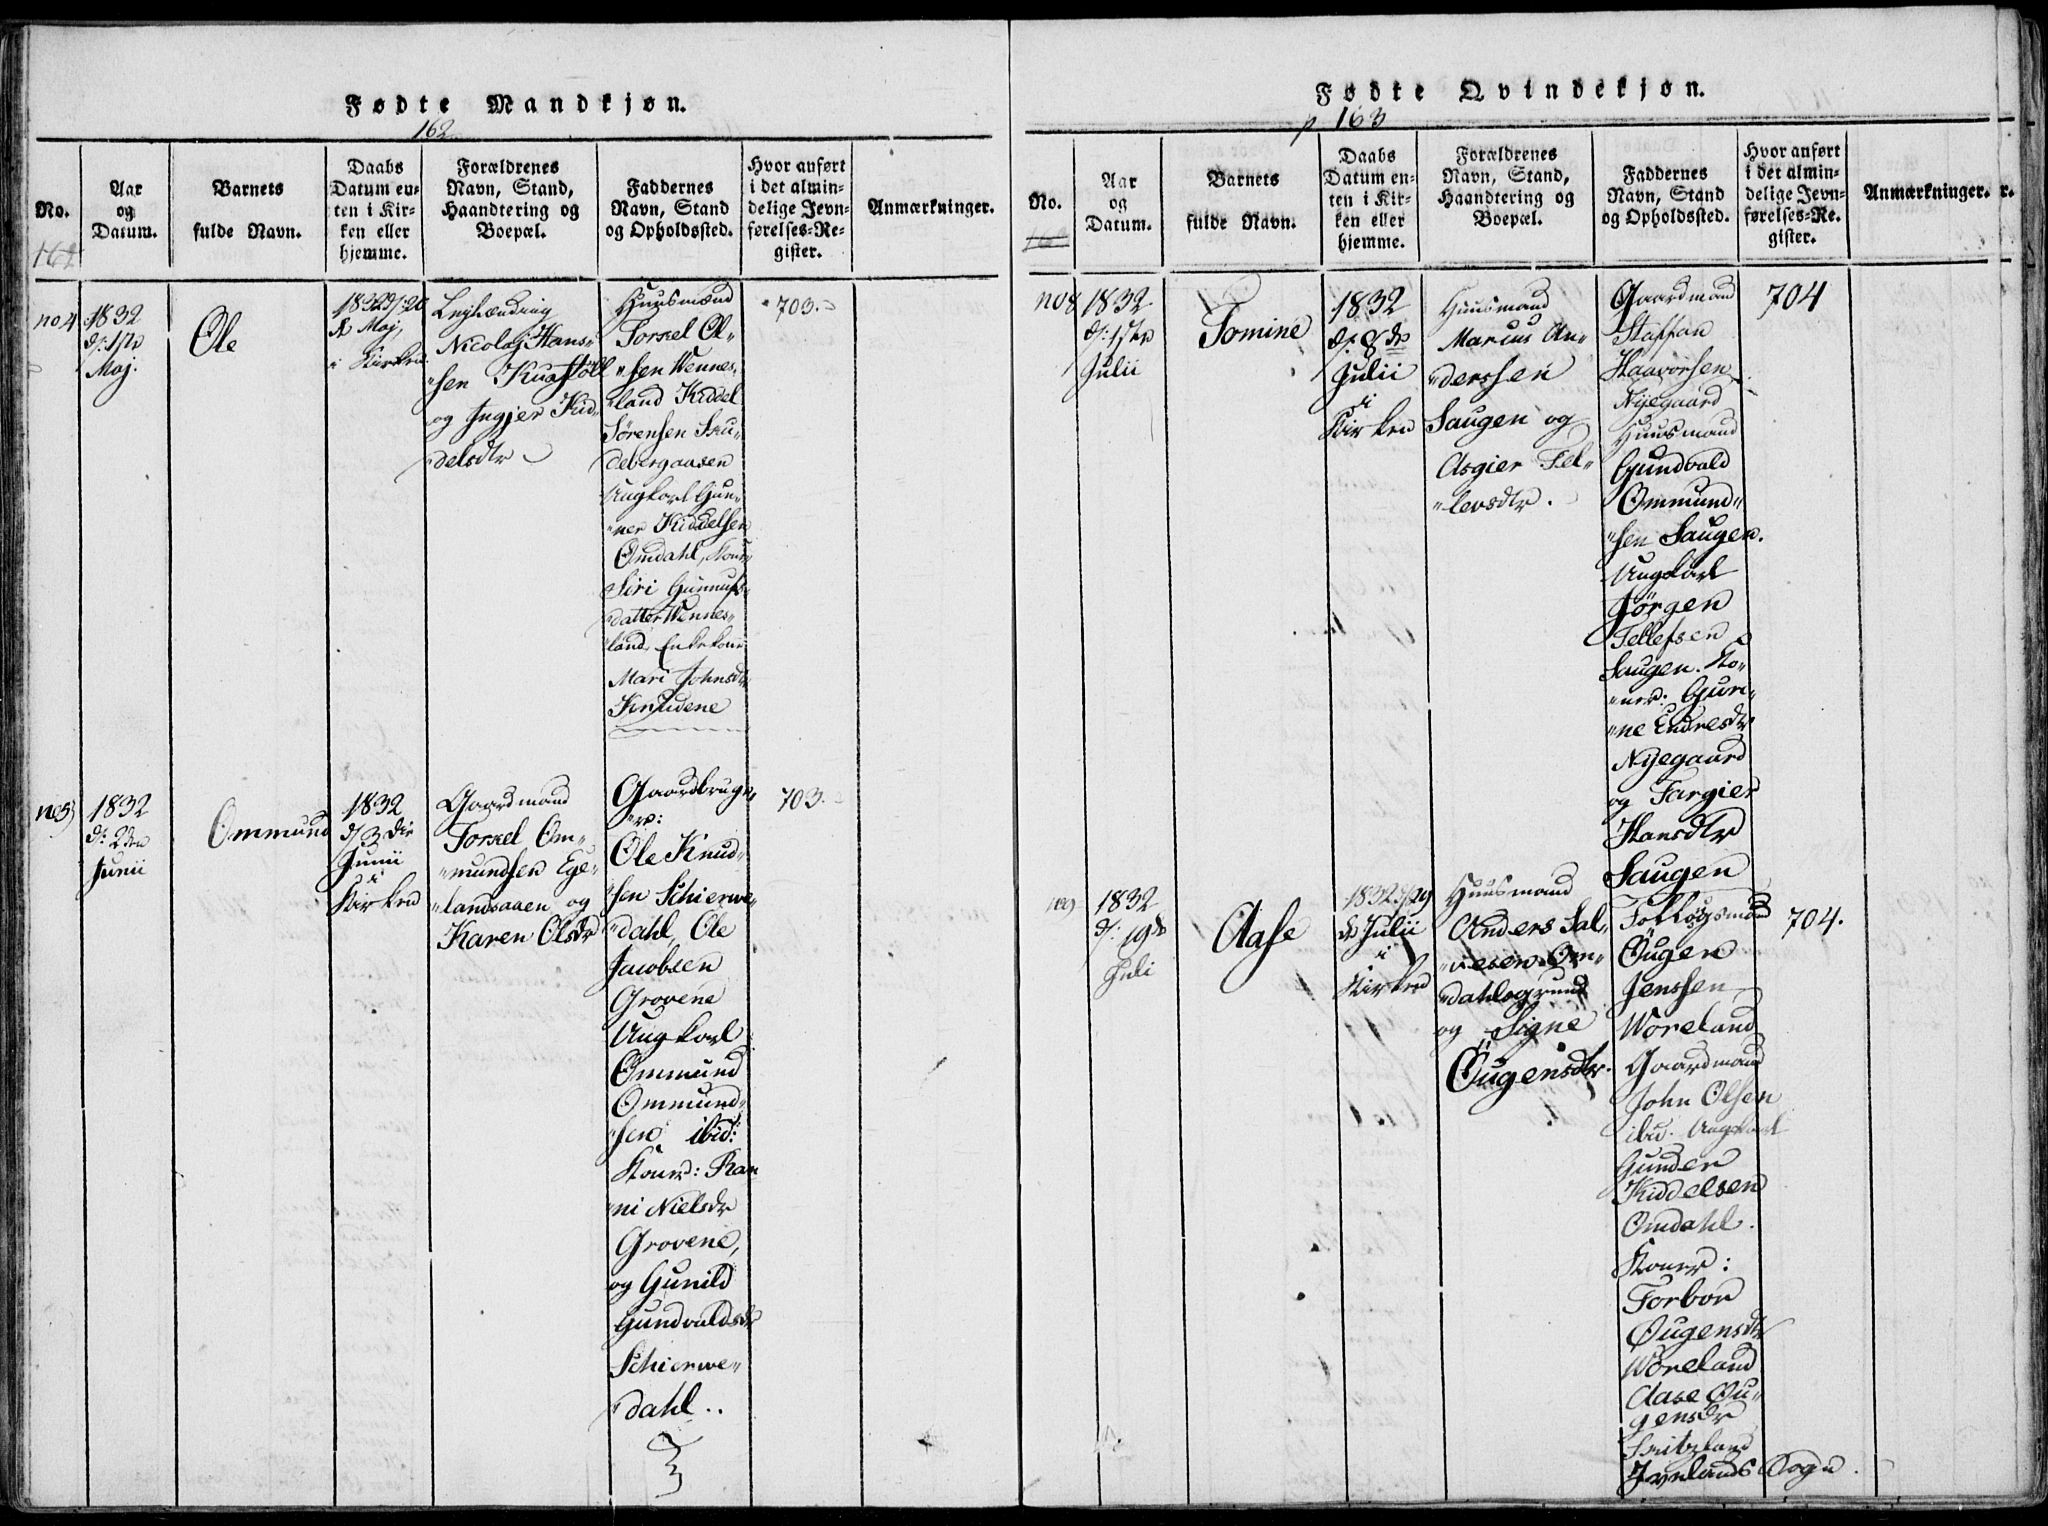 Fødte Mandkjøn.
162
No.
Aar
og
Datum.
Barnets
fulde Navn.
Daabs
Datum en-
ten i Kir-
ken eller
hjemme.
Forældrenes
Navn, Stand,
Haandtering og
Boepæl.
Faddernes
Navn, Stand
og Opholdssted.
Hvor anført
i det almin-
delige Jevn-
førelses-Re-
gister.
Anmærkninger.
no 4
1832
d: 1ste
Maj.
Ole
1832
Maj,
i Kirken
Nicolaj Hans-
sen
og Ingjer Kid-
delsdtr
Huusmænd
Torkel Ol-
sen Wennes-
land Kiddel
Sörensen Sku-
debergaasen
Ungkarl Gun-
ner Kiddelsen
Omdahl,
Siri Gunnufs-
datter Wennes-
land, Enkekone
Mari Johnsdtr
Knudene
703.
no 5
1832
d: 2den
Junii
Ommund
1832
d/ 3die
Junii
i
Kirken
Gaardmand
Torkel Om-
mundsen Ege-
landsaaen og
Karen Olsdr
Gaardbruge-
re:
Ole Knud-
sen Schierwe-
dahl, Ole
Jacobsen
Grovene
Ungkarl
Ommund
Ommund-
sen ibid:
Koner: Ran-
ni Nielsdr
Grovene,
og Gunild
Gundvaldsdr
Schierwe-
dahl..
703.
Fødte Qvindekjøn.
p 163
No.
Aar
og
Datum.
Barnets
fulde Navn.
Daabs
Datum en-
ten i Kir-
ken eller
hjemme.
Forældrenes
Navn, Stand,
Haandtering og
Boepæl.
Faddernes
Navn, Stand
og Opholdssted.
Hvor anført
i det almin-
delige Jevn-
førelses-Re-
gister.
Anmærkninger.
r.
no 8
1832
d: 1ste
Julii
Tomine
1832
d: 8de
Julii
i
Kirken
Huusmand
Marcus An-
derssen
Saugen og
Asgier Tel-
levsdtr.
Gaardmand
Staffan
Haavorsen
Nyegaard
Huusmand
Gundvald
Ommund-
sen Saugen.
Ungkarl
Jörgen
Tellefsen
Saugen. Ko-
ner: Gun-
ne Endresdr
Nyegaard
og Targier
Hansdtr
Saugen
704
no 9
1832
d: 19de
Juli
Aase
1832 d/29
de Julii
i
Kirken
Huusmand
Anders Sal-
vesen Om-
dahlsgrund
og Signe
Öugensdtr.
Öugen
Jenssen
Woreland
Gaardmand
John Olsen
ibid. Ungkarl
Gunder
Kiddelsen
Omdahl.
Koner:
Torbor
Öugensdtr
Woreland
Aase Öu-
gensdr
Ivelands Sogn.
704.